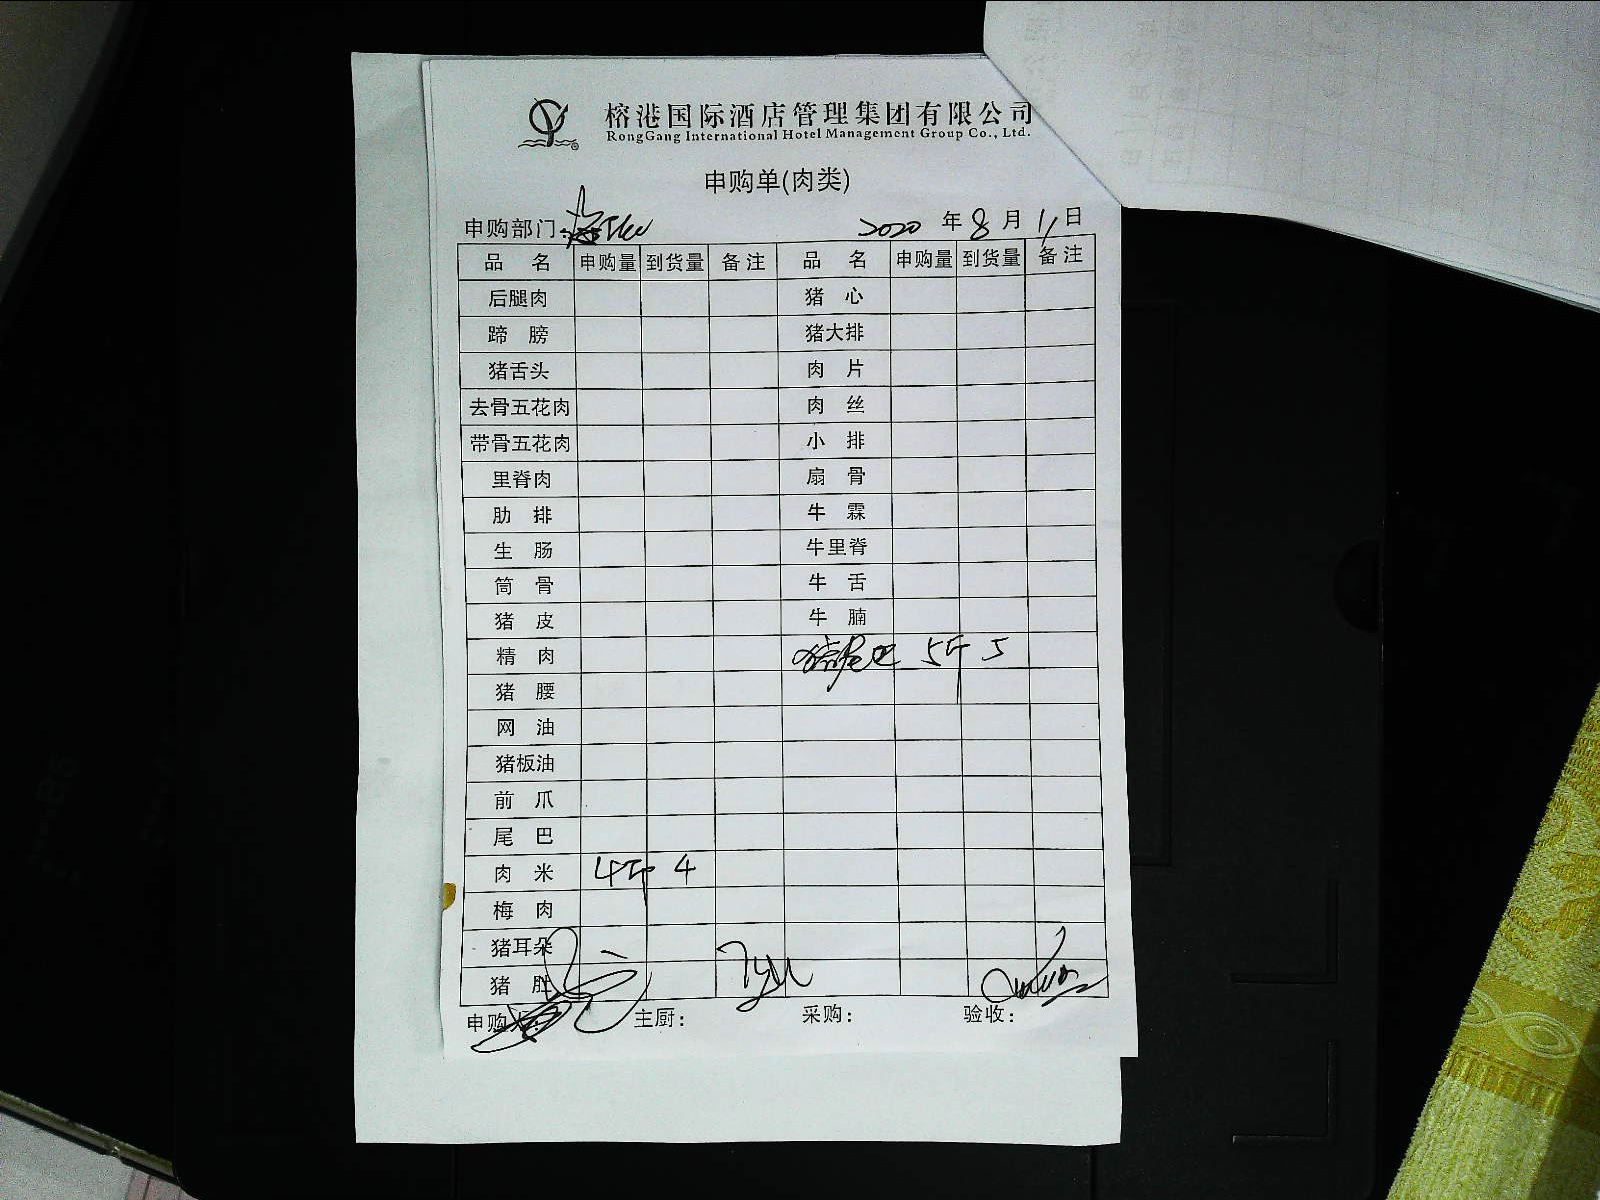 榕港国际酒店管理集团有限公司
RongGang International Hotel Management Group Co., Ltd.
申购单(肉类)
申购部门: 2020 年 8 月 11 日
品 名 申购量 到货量 备注 品 名 申购量 到货量 备注
后腿肉 猪 心
蹄 膀 猪大排
猪舌头 肉 片
去骨五花肉 肉 丝
带骨五花肉 小 排
里脊肉 扇 骨
肋 排 牛 霖
生 肠 牛里脊
筒 骨 牛 舌
猪 皮 牛 腩
精 肉 猪尾巴 5斤 5
猪 腰
网 油
猪板油
前 爪
尾 巴
肉 米 4斤 4
梅 肉
猪耳朵
猪 肚
申购人: 主厨: 采购: 验收: